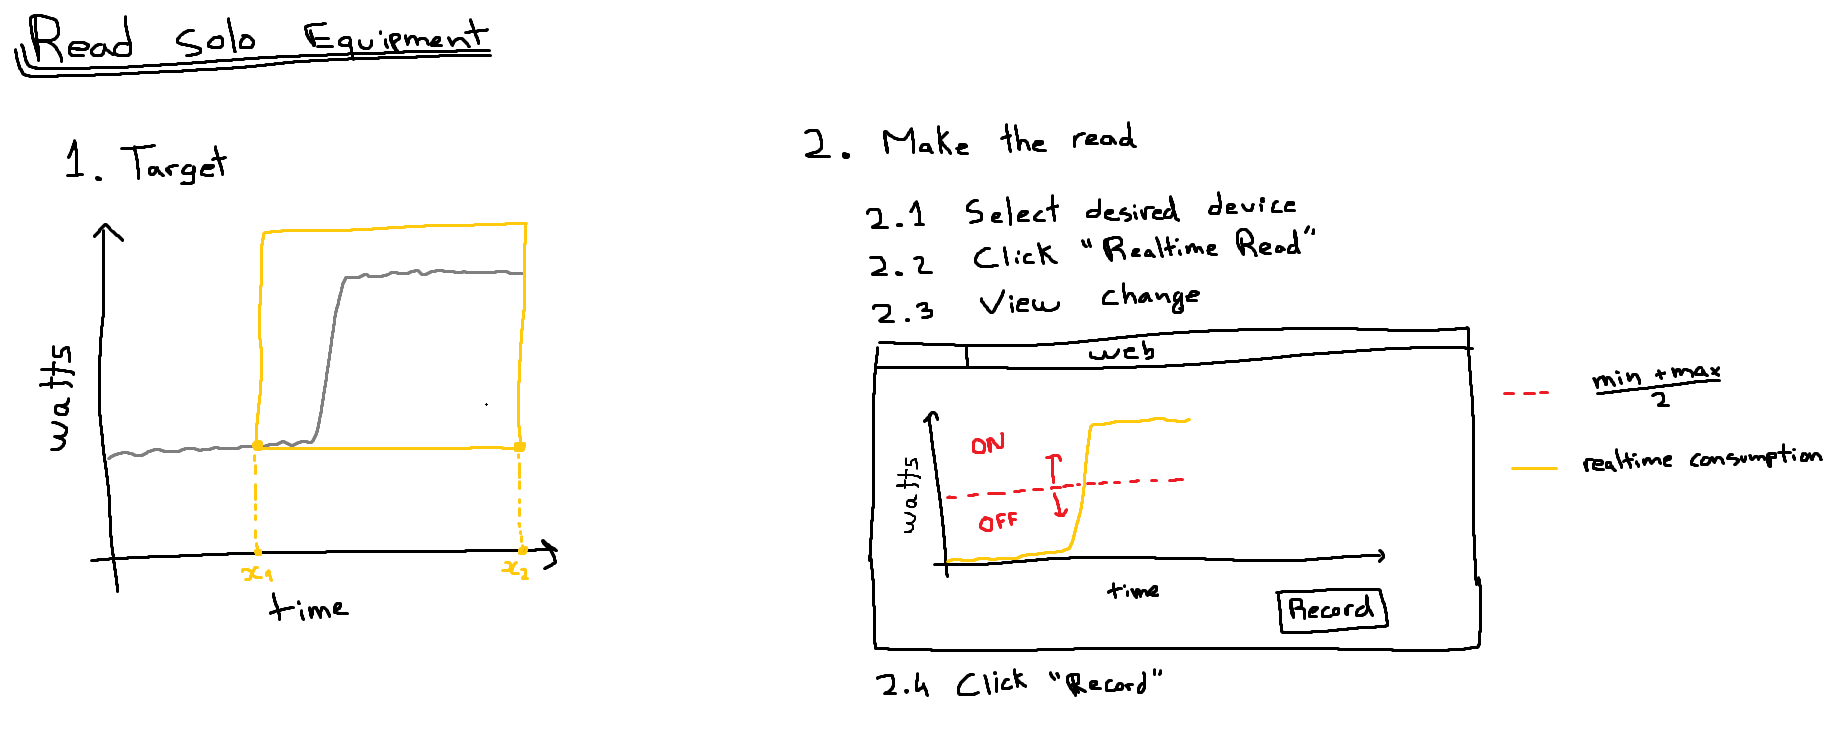 Read Solo Equipment
1. Target
watts
x1
x2
time
2. Make the read
2.1 Select desired device
2.2 Click "Realtime Read"
2.3 View change
web
watts
ON
OFF
time
Record
min + max
2
realtime consumption
2.4 Click "Record"